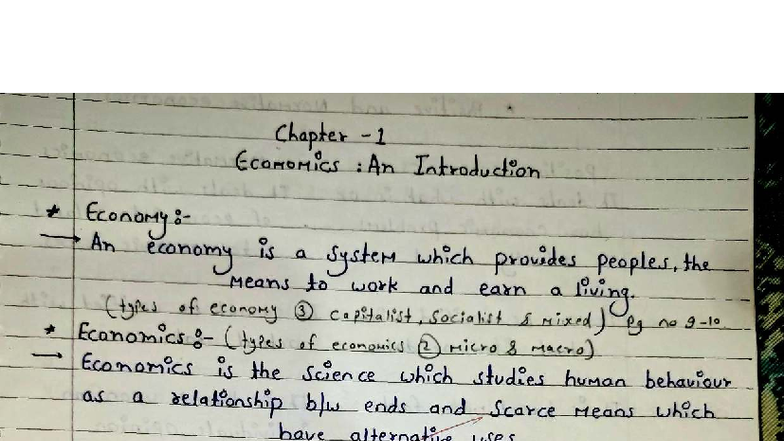 Chapter - 1
Economics : An Introduction
* Economy :-
→ An economy is a system which provides peoples, the
means to work and earn a living.
(types of economy ③ capitalist, socialist & mixed) Pg no 9-10
* Economics :- (types of economics ② micro & macro)
→ Economics is the science which studies human behaviour
as a relationship b/w ends and scarce means which
have alternative uses